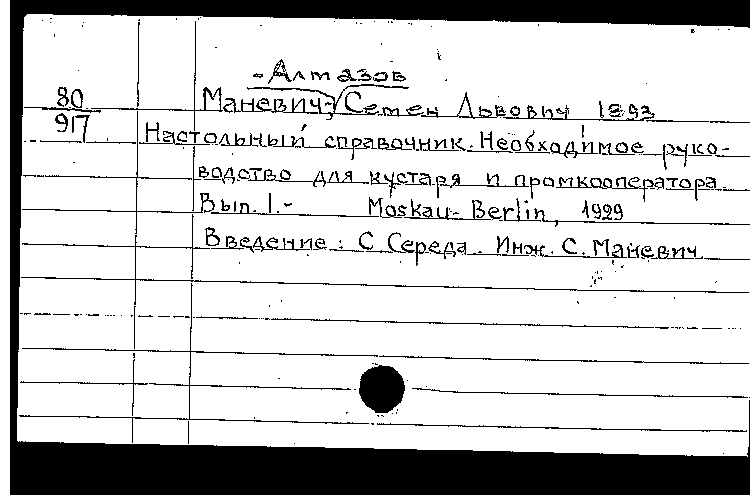 -Алтазов
80 Маневич, Семен Львович 1893
917 Настольный справочник. Необходимое руко-
водство для кустаря и промкооператора
Вып. 1.- Moskau-Berlin, 1929
Введение: С Середа. Инж. С. Маневич